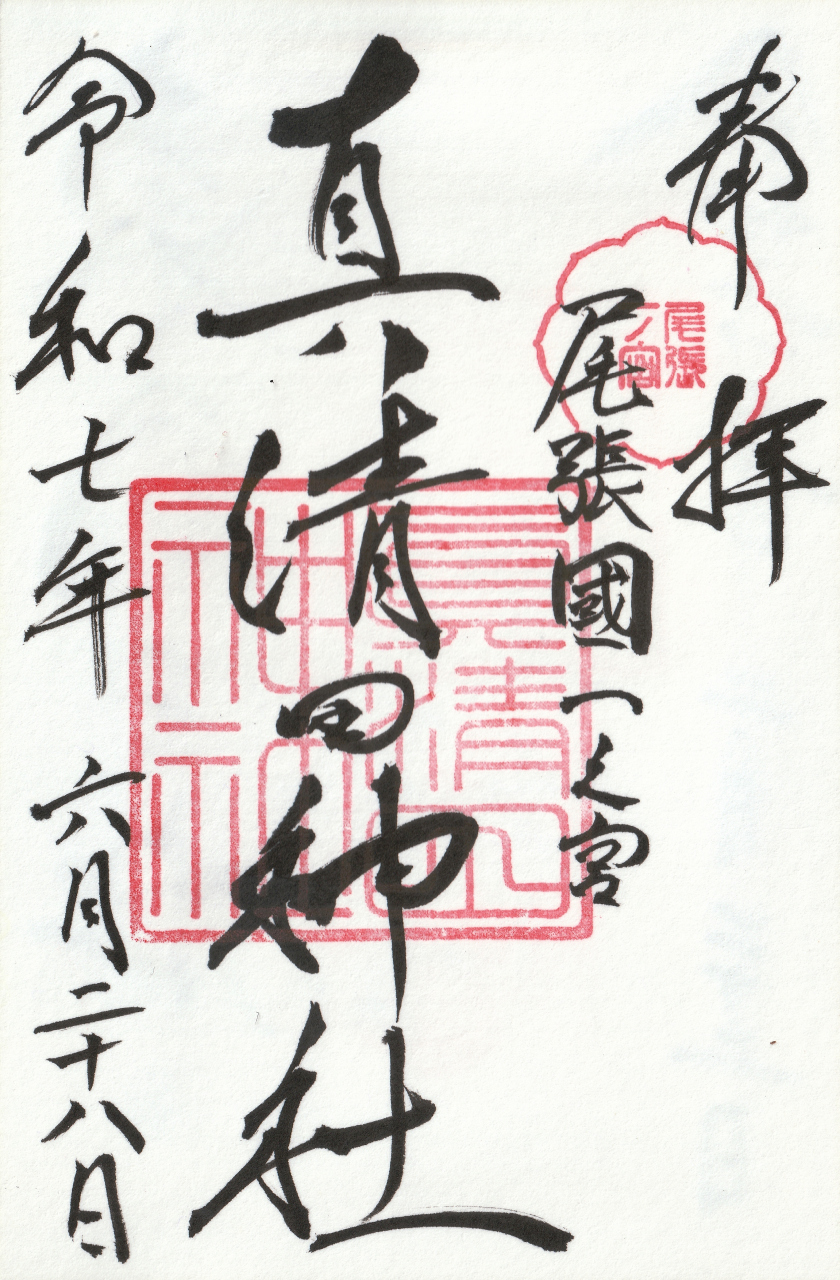 奉拝
尾張國一之宮
尾張
一ノ宮
真清田神社
真清田
神社
令和七年 六月二十八日